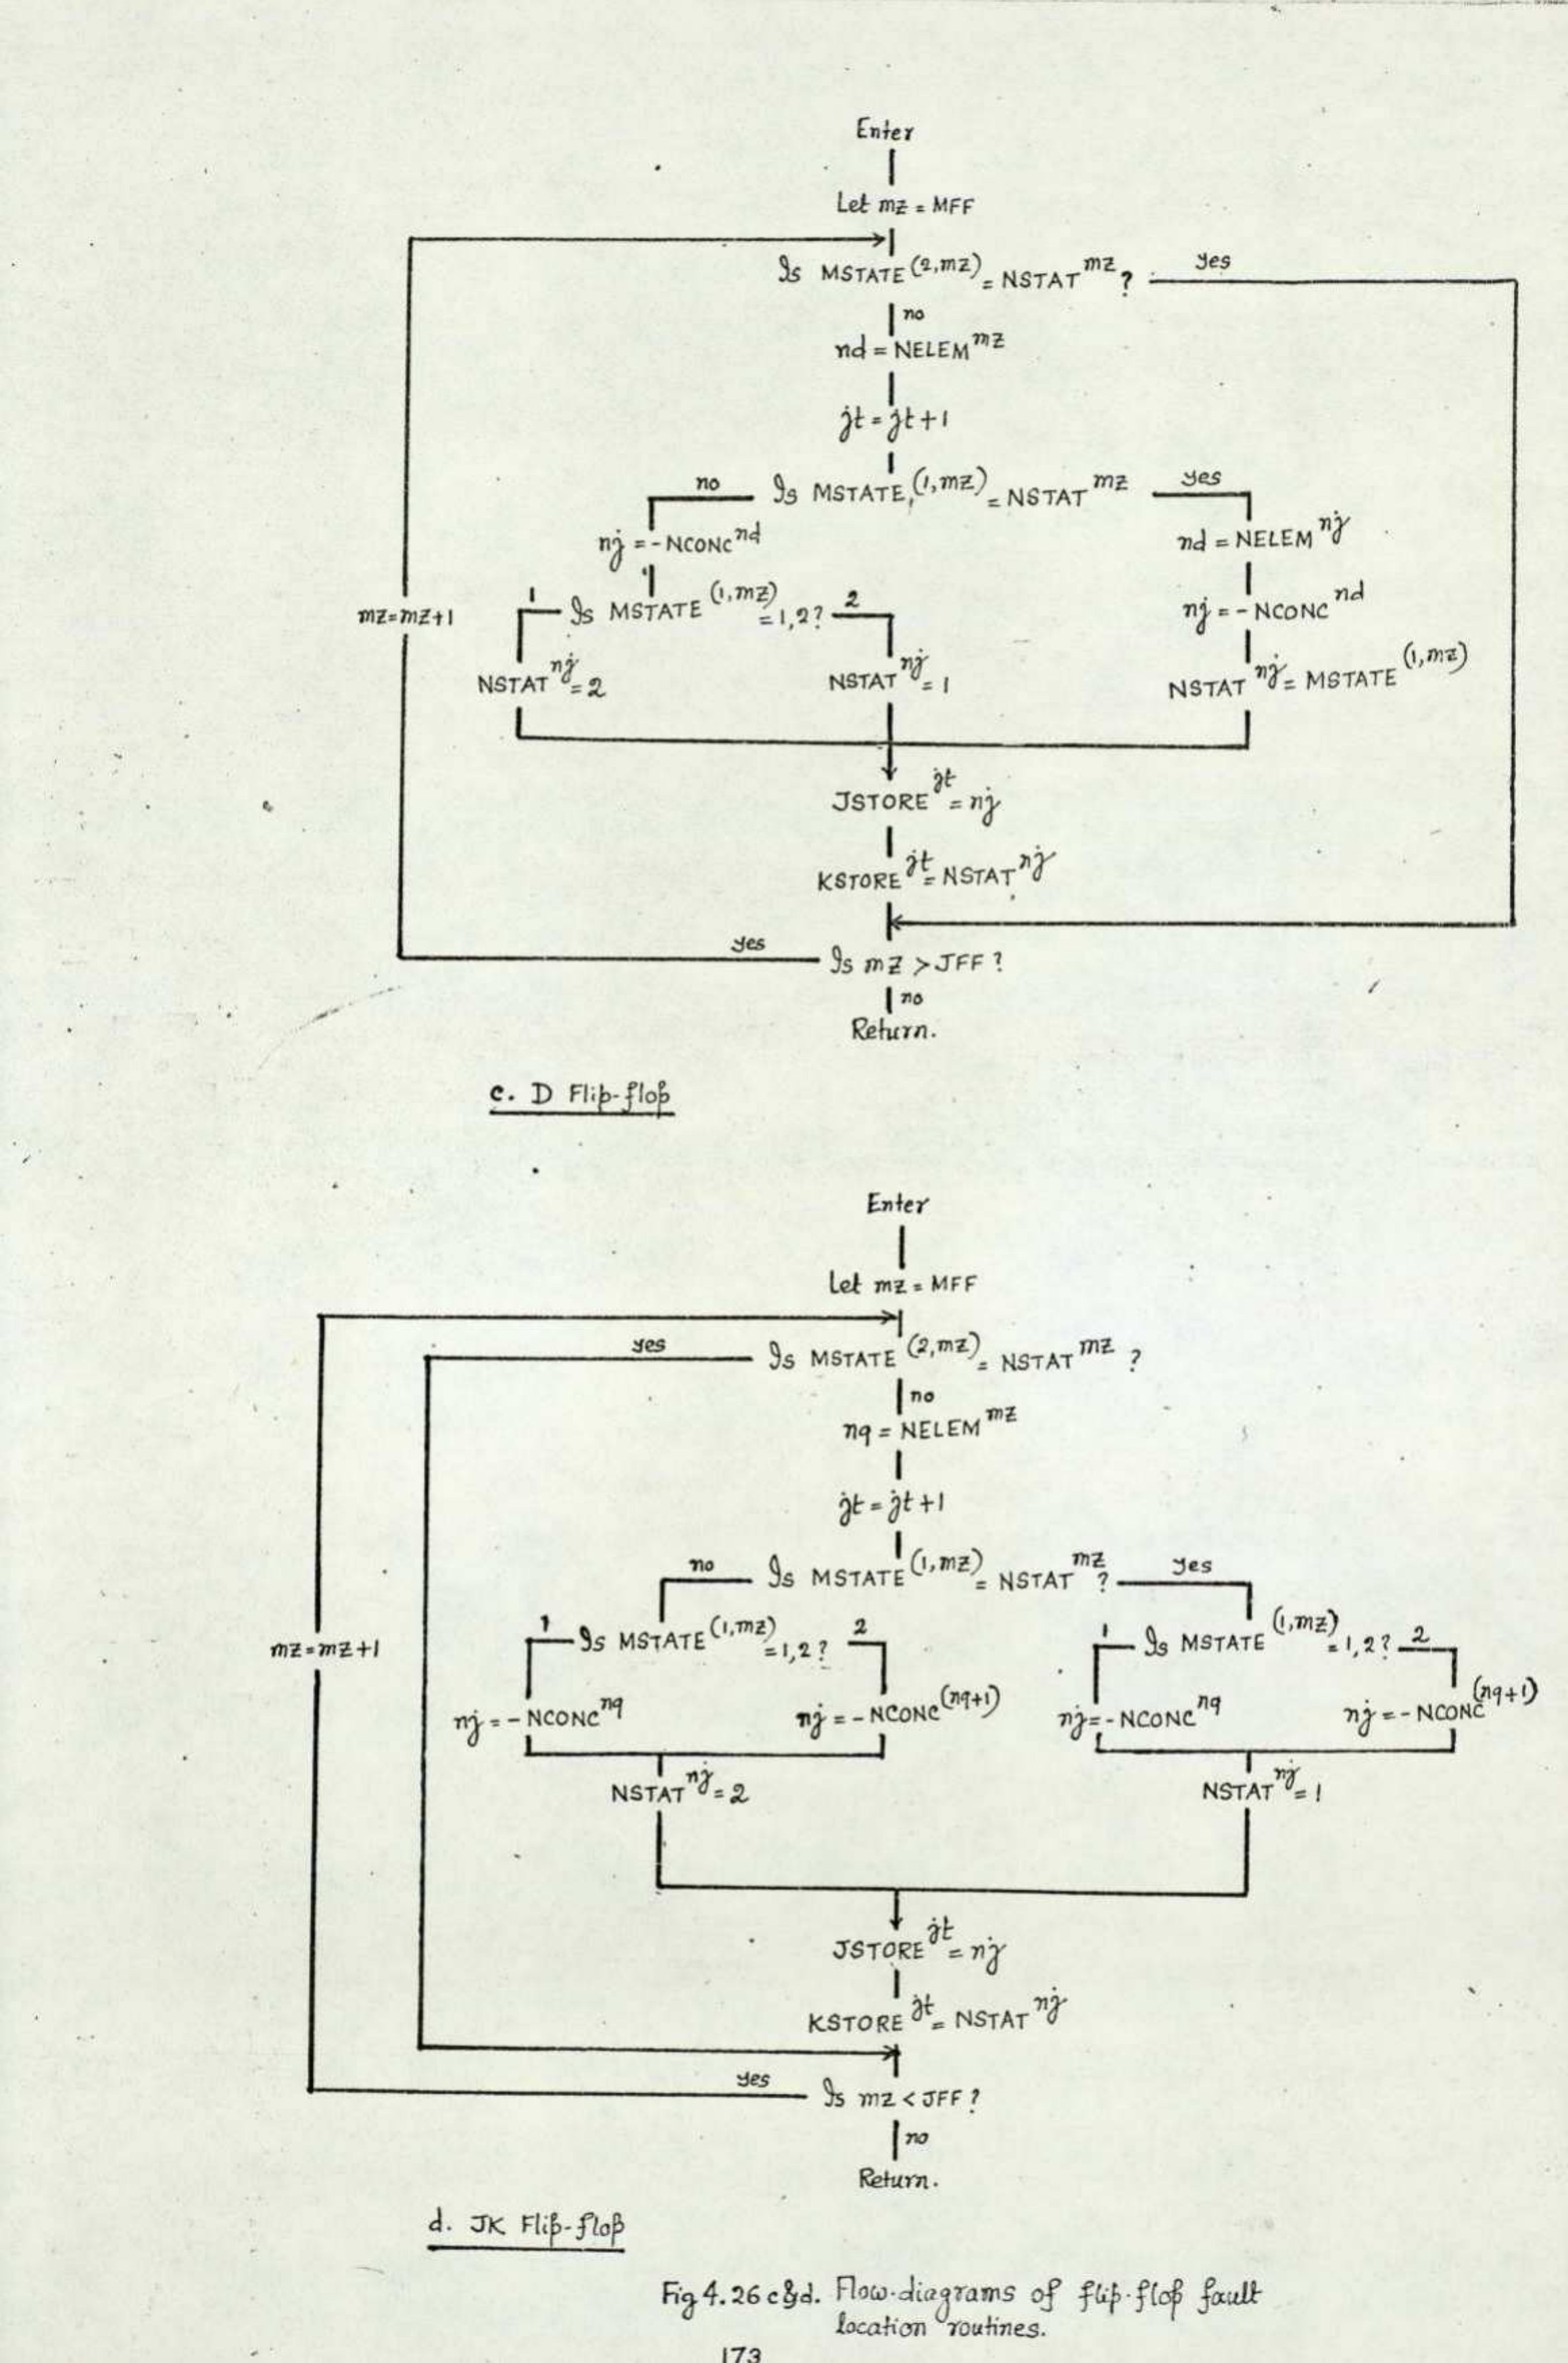 Enter
Let mz = MFF
Is MSTATE(2,mz) = NSTAT mz ? yes
no
nd = NELEM mz
jt = jt+1
no Is MSTATE(1,mz) = NSTAT mz yes
nj = -NCONC nd
nd = NELEM nj
mz=mz+1
1 Is MSTATE(1,mz) = 1,2? 2
nj = -NCONC nd
NSTAT nj = 2
NSTAT nj = 1
NSTAT nj = MSTATE(1,mz)
JSTORE jt = nj
KSTORE jt = NSTAT nj
yes Is mz > JFF ?
no
Return.
c. D Flip-flop
Enter
Let mz = MFF
yes Is MSTATE(2,mz) = NSTAT mz ?
no
nq = NELEM mz
jt = jt+1
no Is MSTATE(1,mz) = NSTAT mz ? yes
1 Is MSTATE(1,mz) = 1,2? 2
1 Is MSTATE(1,mz) = 1,2? 2
mz=mz+1
nj = -NCONC nq
nj = -NCONC(nq+1)
nj = -NCONC nq
nj = -NCONC(nq+1)
NSTAT nj = 2
NSTAT nj = 1
JSTORE jt = nj
KSTORE jt = NSTAT nj
yes Is mz < JFF ?
no
Return.
d. JK Flip-flop
Fig 4.26 c&d. Flow-diagrams of flip-flop fault
location routines.
173